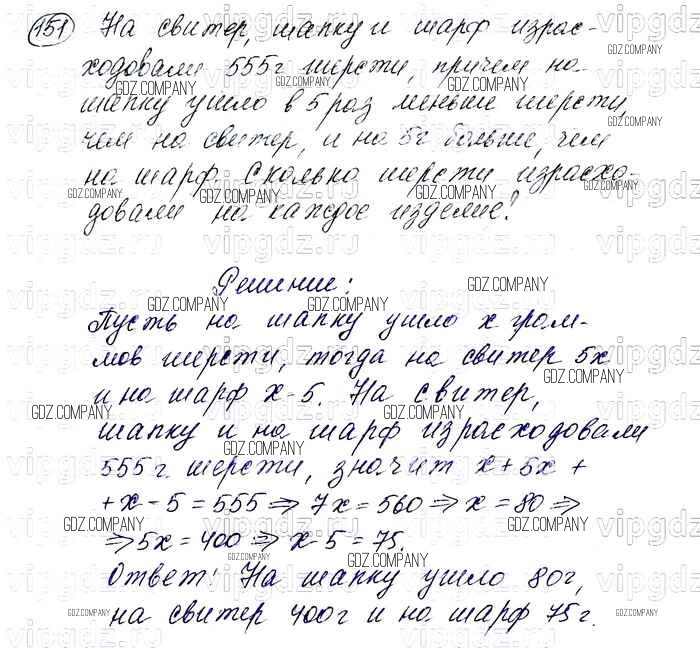 151 На свитер, шапку и шарф израс-
ходовали 555г шерсти, причем на
шапку ушло в 5 раз меньше шерсти,
чем на свитер, и на 5г больше, чем
на шарф. Сколько шерсти израсхо-
довали на каждое изделие?
Решение:
Пусть на шапку ушло х грам-
мов шерсти, тогда на свитер 5х
и на шарф х-5. На свитер,
шапку и на шарф израсходовали
555г. шерсти, значит х+5х+
+х-5=555 ⇒ 7х=560 ⇒ х=80 ⇒
⇒ 5х=400 ⇒ х-5=75.
Ответ: На шапку ушло 80г,
на свитер 400г и на шарф 75г.